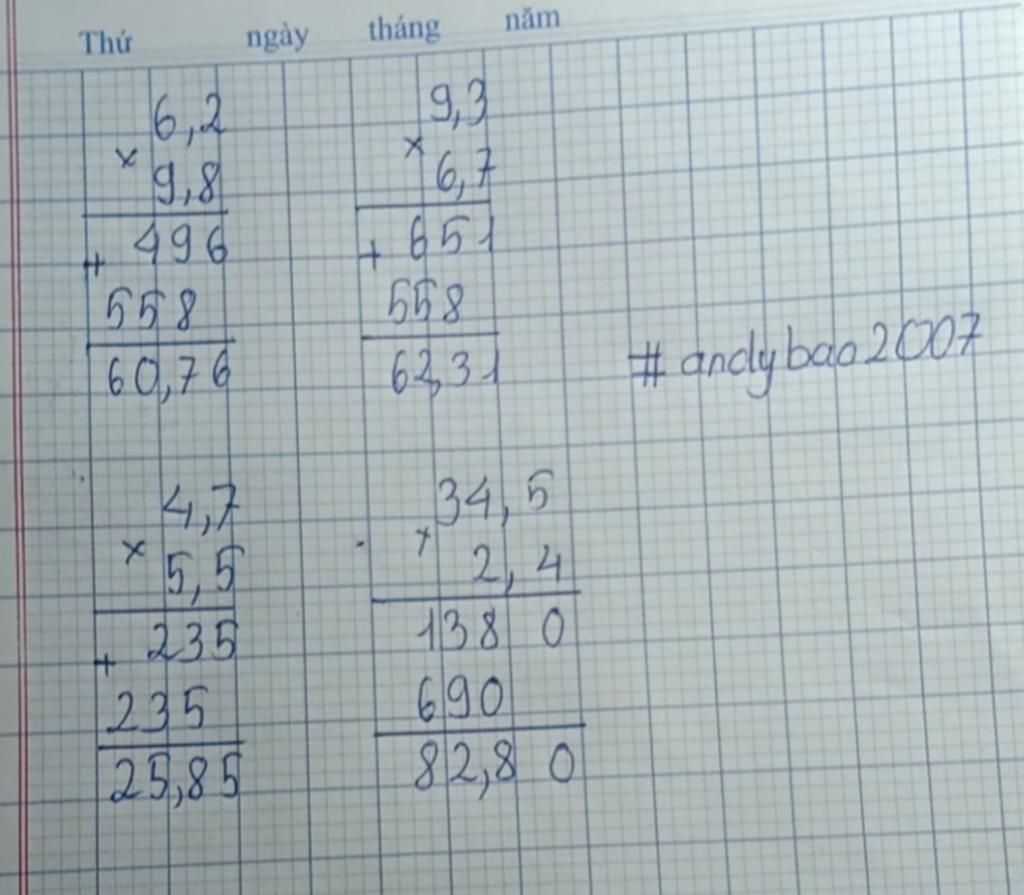 Thứ ngày tháng năm
6,2
×
9,8
496
+
558
60,76
9,3
×
6,7
+ 651
558
62,31
#andybao2007
4,7
×
5,5
235
+
235
25,85
34,5
×
2,4
1380
690
82,80